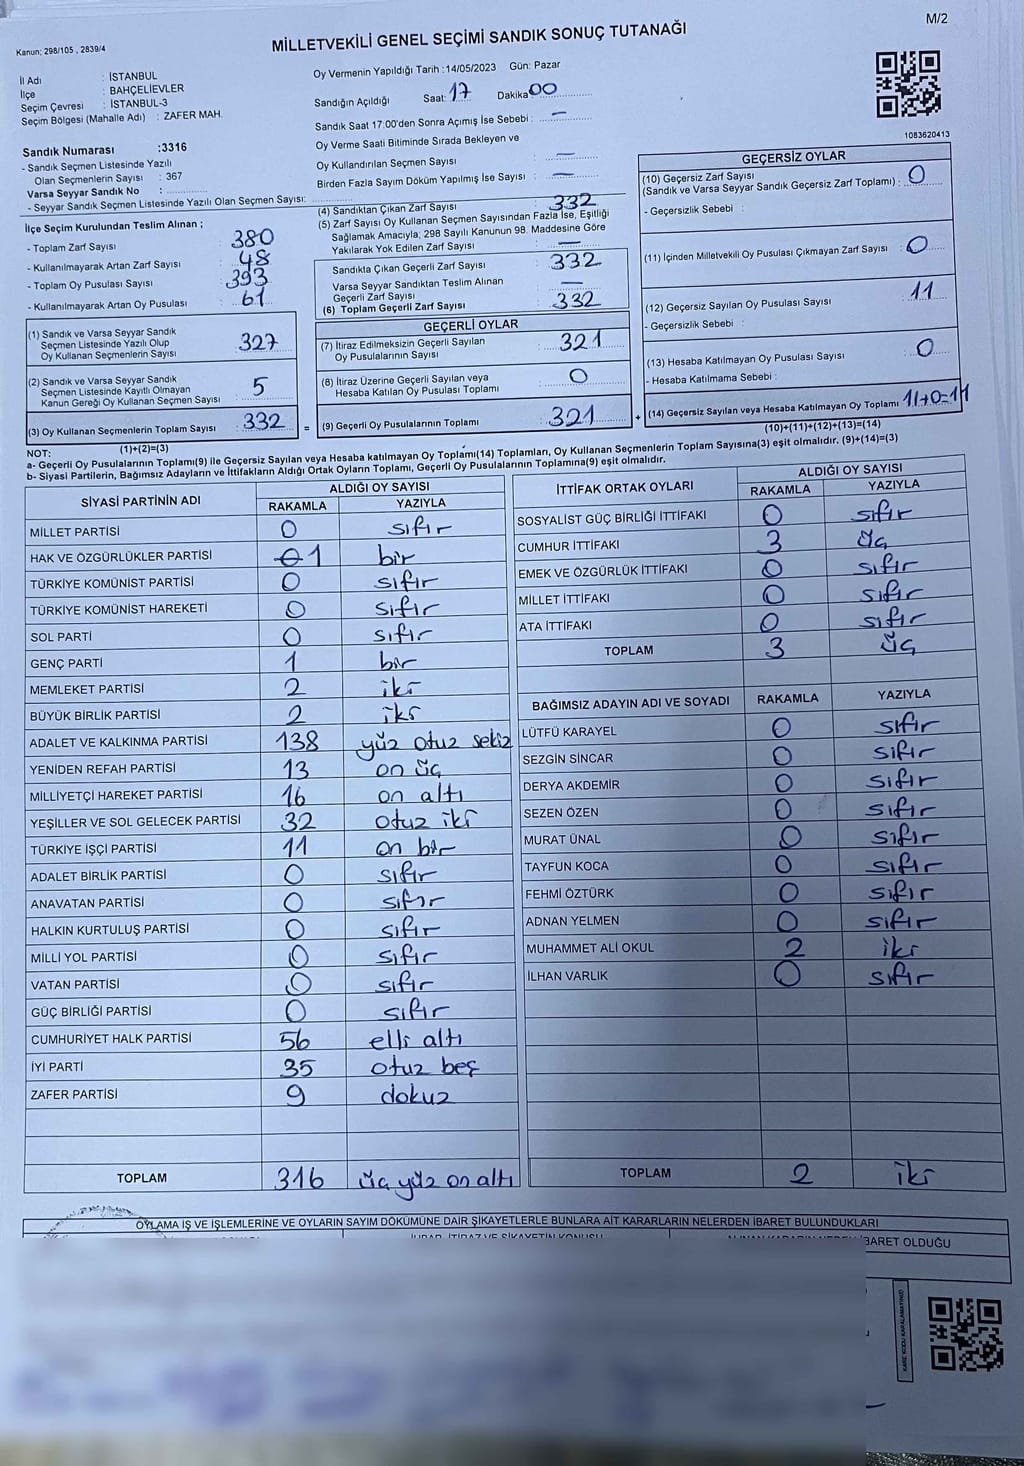 M/2
Kanun; 298/105 , 2839/4
MİLLETVEKİLİ GENEL SEÇİMİ SANDIK SONUÇ TUTANAĞI
İl Adı : İSTANBUL
İlçe : BAHÇELİEVLER
Seçim Çevresi : İSTANBUL-3
Seçim Bölgesi (Mahalle Adı) : ZAFER MAH.
Sandık Numarası :3316
- Sandık Seçmen Listesinde Yazılı
Olan Seçmenlerin Sayısı : 367
Varsa Seyyar Sandık No :
- Seyyar Sandık Seçmen Listesinde Yazılı Olan Seçmen Sayısı:
Oy Vermenin Yapıldığı Tarih :14/05/2023 Gün: Pazar
Sandığın Açıldığı Saat: 17 Dakika 00
Sandık Saat 17:00'den Sonra Açımış İse Sebebi : —
Oy Verme Saati Bitiminde Sırada Bekleyen ve
Oy Kullandırılan Seçmen Sayısı : —
Birden Fazla Sayım Döküm Yapılmış İse Sayısı : —
1083620413
İlçe Seçim Kurulundan Teslim Alınan ;
- Toplam Zarf Sayısı : 380
- Kullanılmayarak Artan Zarf Sayısı : 48
- Toplam Oy Pusulası Sayısı : 393
- Kullanılmayarak Artan Oy Pusulası : 61
(1) Sandık ve Varsa Seyyar Sandık
Seçmen Listesinde Yazılı Olup
Oy Kullanan Seçmenlerin Sayısı : 327
(2) Sandık ve Varsa Seyyar Sandık
Seçmen Listesinde Kayıtlı Olmayan
Kanun Gereği Oy Kullanan Seçmen Sayısı : 5
(3) Oy Kullanan Seçmenlerin Toplam Sayısı : 332
(1)+(2)=(3)
(4) Sandıktan Çıkan Zarf Sayısı : 332
(5) Zarf Sayısı Oy Kullanan Seçmen Sayısından Fazla İse, Eşitliği
Sağlamak Amacıyla; 298 Sayılı Kanunun 98. Maddesine Göre
Yakılarak Yok Edilen Zarf Sayısı : —
Sandıkta Çıkan Geçerli Zarf Sayısı : 332
Varsa Seyyar Sandıktan Teslim Alınan
Geçerli Zarf Sayısı : —
(6) Toplam Geçerli Zarf Sayısı : 332
GEÇERLİ OYLAR
(7) İtiraz Edilmeksizin Geçerli Sayılan
Oy Pusulalarının Sayısı : 321
(8) İtiraz Üzerine Geçerli Sayılan veya
Hesaba Katılan Oy Pusulası Toplamı : 0
= (9) Geçerli Oy Pusulalarının Toplamı : 321
GEÇERSİZ OYLAR
(10) Geçersiz Zarf Sayısı
(Sandık ve Varsa Seyyar Sandık Geçersiz Zarf Toplamı) : 0
- Geçersizlik Sebebi :
(11) İçinden Milletvekili Oy Pusulası Çıkmayan Zarf Sayısı : 0
(12) Geçersiz Sayılan Oy Pusulası Sayısı : 11
- Geçersizlik Sebebi :
(13) Hesaba Katılmayan Oy Pusulası Sayısı : 0
- Hesaba Katılmama Sebebi :
+ (14) Geçersiz Sayılan veya Hesaba Katılmayan Oy Toplamı 11+0=11
(10)+(11)+(12)+(13)=(14)
NOT:
a- Geçerli Oy Pusulalarının Toplamı(9) ile Geçersiz Sayılan veya Hesaba katılmayan Oy Toplamı(14) Toplamları, Oy Kullanan Seçmenlerin Toplam Sayısına(3) eşit olmalıdır. (9)+(14)=(3)
b- Siyasi Partilerin, Bağımsız Adayların ve İttifakların Aldığı Ortak Oyların Toplamı, Geçerli Oy Pusulalarının Toplamına(9) eşit olmalıdır.
SİYASİ PARTİNİN ADI ALDIĞI OY SAYISI
RAKAMLA YAZIYLA
MİLLET PARTİSİ 0 sıfır
HAK VE ÖZGÜRLÜKLER PARTİSİ 0 1 bir
TÜRKİYE KOMÜNİST PARTİSİ 0 sıfır
TÜRKİYE KOMÜNİST HAREKETİ 0 sıfır
SOL PARTİ 0 sıfır
GENÇ PARTİ 1 bir
MEMLEKET PARTİSİ 2 iki
BÜYÜK BİRLİK PARTİSİ 2 iki
ADALET VE KALKINMA PARTİSİ 138 yüz otuz sekiz
YENİDEN REFAH PARTİSİ 13 on üç
MİLLİYETÇİ HAREKET PARTİSİ 16 on altı
YEŞİLLER VE SOL GELECEK PARTİSİ 32 otuz iki
TÜRKİYE İŞÇİ PARTİSİ 11 on bir
ADALET BİRLİK PARTİSİ 0 sıfır
ANAVATAN PARTİSİ 0 sıfır
HALKIN KURTULUŞ PARTİSİ 0 sıfır
MİLLİ YOL PARTİSİ 0 sıfır
VATAN PARTİSİ 0 sıfır
GÜÇ BİRLİĞİ PARTİSİ 0 sıfır
CUMHURİYET HALK PARTİSİ 56 elli altı
İYİ PARTİ 35 otuz beş
ZAFER PARTİSİ 9 dokuz
TOPLAM 316 üç yüz on altı
İTTİFAK ORTAK OYLARI ALDIĞI OY SAYISI
RAKAMLA YAZIYLA
SOSYALİST GÜÇ BİRLİĞİ İTTİFAKI 0 sıfır
CUMHUR İTTİFAKI 3 üç
EMEK VE ÖZGÜRLÜK İTTİFAKI 0 sıfır
MİLLET İTTİFAKI 0 sıfır
ATA İTTİFAKI 0 sıfır
TOPLAM 3 üç
BAĞIMSIZ ADAYIN ADI VE SOYADI RAKAMLA YAZIYLA
LÜTFÜ KARAYEL 0 sıfır
SEZGİN SİNCAR 0 sıfır
DERYA AKDEMİR 0 sıfır
SEZEN ÖZEN 0 sıfır
MURAT ÜNAL 0 sıfır
TAYFUN KOCA 0 sıfır
FEHMİ ÖZTÜRK 0 sıfır
ADNAN YELMEN 0 sıfır
MUHAMMET ALİ OKUL 2 iki
İLHAN VARLIK 0 sıfır
TOPLAM 2 iki
OYLAMA İŞ VE İŞLEMLERİNE VE OYLARIN SAYIM DÖKÜMÜNE DAİR ŞİKAYETLERLE BUNLARA AİT KARARLARIN NELERDEN İBARET BULUNDUKLARI
İBARET OLDUĞU
KARE KODU KARALAMAYINIZ